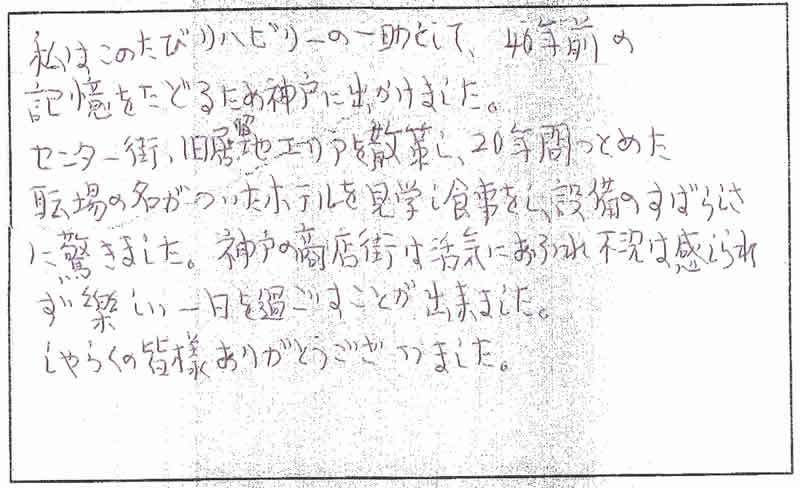 私はこのたびリハビリーの一助として、40年前の
記憶をたどるため神戸に出かけました。
センター街、旧居留地エリアを散策し、20年間つとめた
職場の名がついたホテルを見学し食事をし、設備のすばらしさ
に驚きました。神戸の商店街は活気にあふれ不況は感じられ
ず楽しい一日を過ごすことが出来ました。
しゃらくの皆様ありがとうございました。